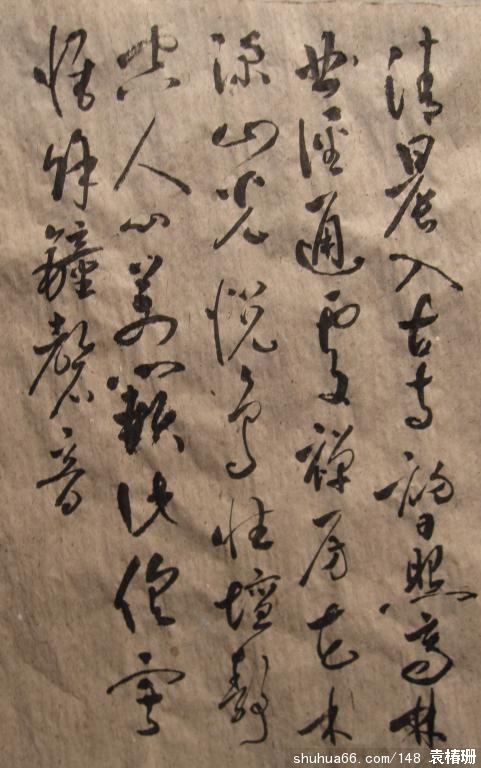 清晨入古寺初日照高林
曲徑通幽處禪房花木
深山光悅鳥性潭影
空人心萬籟此俱寂
惟餘鐘磬音
shuhua66.com/148 袁椿珊